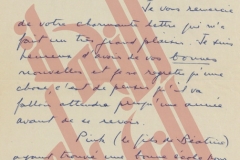 Je vous remercie
de votre charmante lettre qui m'a
fait un très grand plaisir. Je suis
heureuse d'avoir de vos bonnes
nouvelles et je ne regrette qu'une
chose c'est de penser qu'il va
falloir attendre presqu'une année
avant de se revoir.
Pink (le fils de Béatrice)
ayant trouvé une bonne